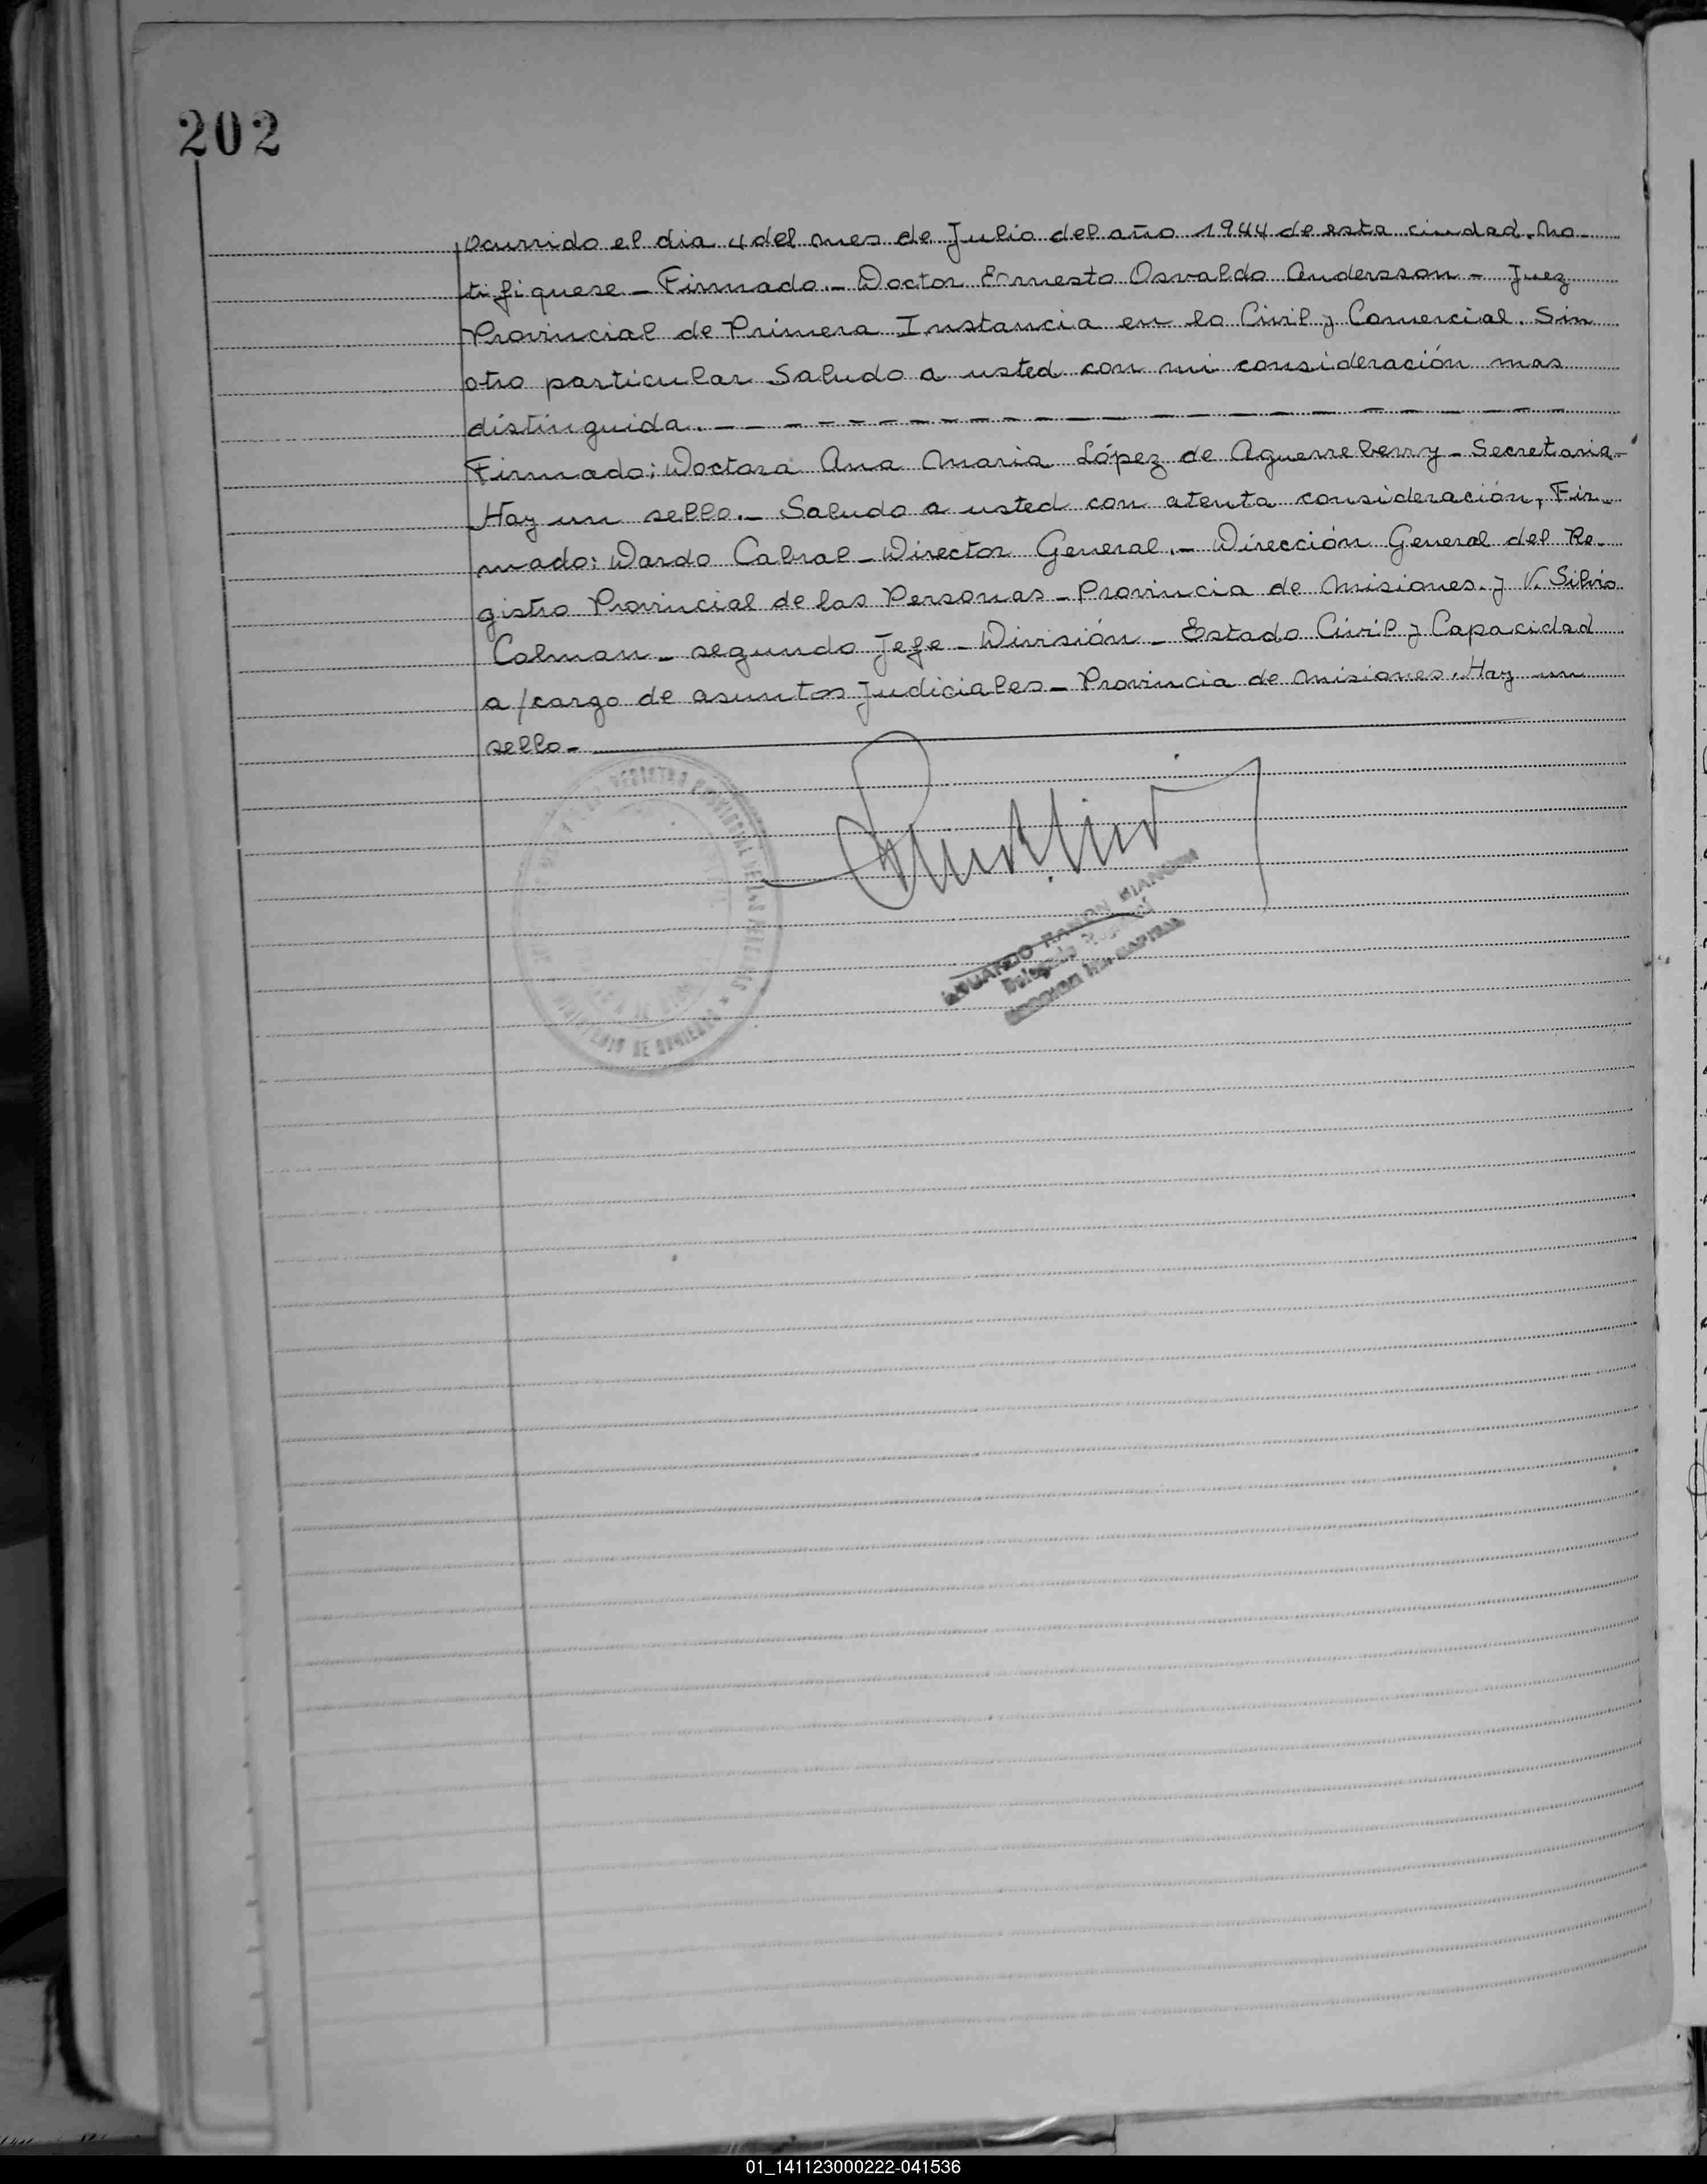 202
ocurrido el dia 4 del mes de Julio del año 1944 de esta ciudad. No-
tifiquese - Firmado.- Doctor Ernesto Osvaldo Andersson - Juez
Provincial de Primera Instancia en lo Civil y Comercial. Sin
otro particular Saludo a usted con mi consideración mas
distinguida. - - - - - - - - - - - - - - - - - -
Firmado: Doctora Ana Maria López de Aguerreberry - Secretaria -
Hay un sello.- Saludo a usted con atenta consideración, Fir-
mado: Dardo Cabral - Director General.- Dirección General del Re-
gistro Provincial de las Personas - Provincia de Misiones. y V. Silvio
Colman - segundo Jefe - División - Estado Civil y Capacidad
a/cargo de asuntos Judiciales - Provincia de Misiones. Hay un
sello -
REGISTRO PROVINCIAL DE LAS PERSONAS
DE GOBIERNO
EDUARDO RAMON BIANCHI
Delegado
CAPITAL
01_141123000222-041536